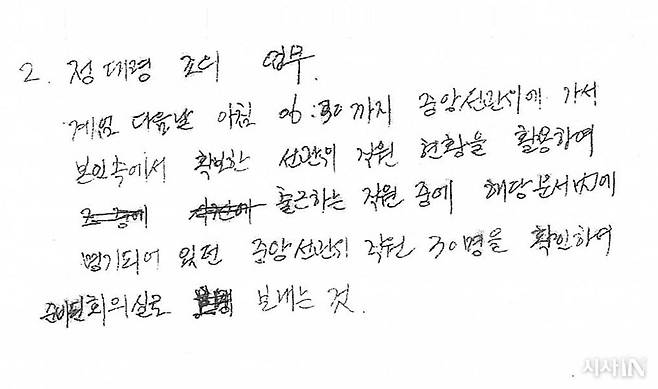 2. 정대령 조의 업무.
계엄 다음날 아침 06:30까지 중앙선관위에 가서
본인속에서 확인한 선관위 직원 현황을 활용하여
출근하는 직원 중에 해당문서內에
명기되어 있던 중앙선관위 직원 30명을 확인하여
준비된 회의실로 보내는 것.
시사IN